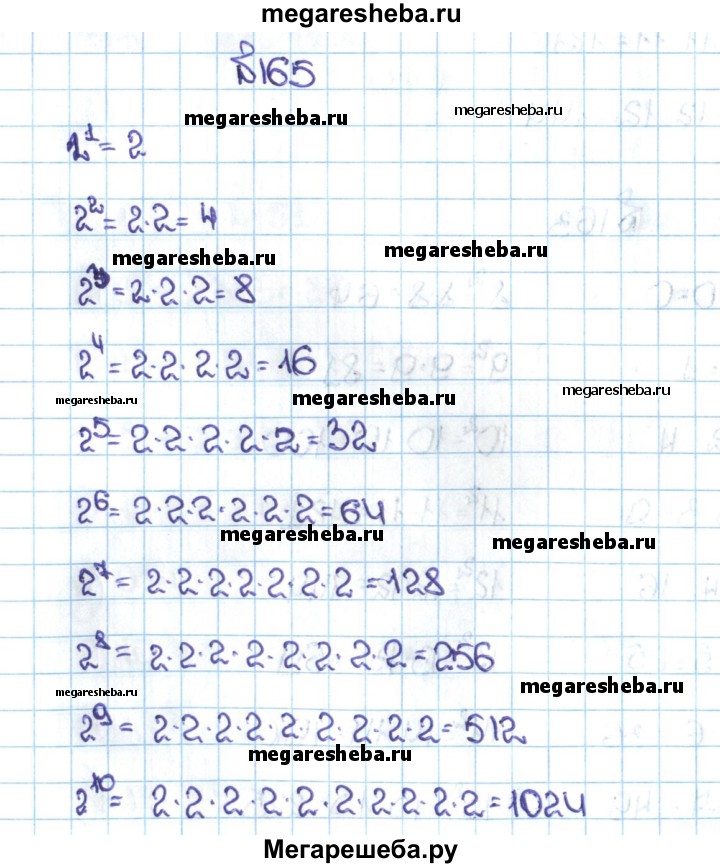 megaresheba.ru
№165
megaresheba.ru
megaresheba.ru
2¹ = 2
2² = 2·2 = 4
megaresheba.ru
megaresheba.ru
2³ = 2·2·2 = 8
2⁴ = 2·2·2·2 = 16
megaresheba.ru
megaresheba.ru
megaresheba.ru
2⁵ = 2·2·2·2·2 = 32
2⁶ = 2·2·2·2·2·2 = 64
megaresheba.ru
megaresheba.ru
2⁷ = 2·2·2·2·2·2·2 = 128
2⁸ = 2·2·2·2·2·2·2·2 = 256
megaresheba.ru
megaresheba.ru
2⁹ = 2·2·2·2·2·2·2·2·2 = 512
megaresheba.ru
2¹⁰ = 2·2·2·2·2·2·2·2·2·2 = 1024
Мегарешеба.ру